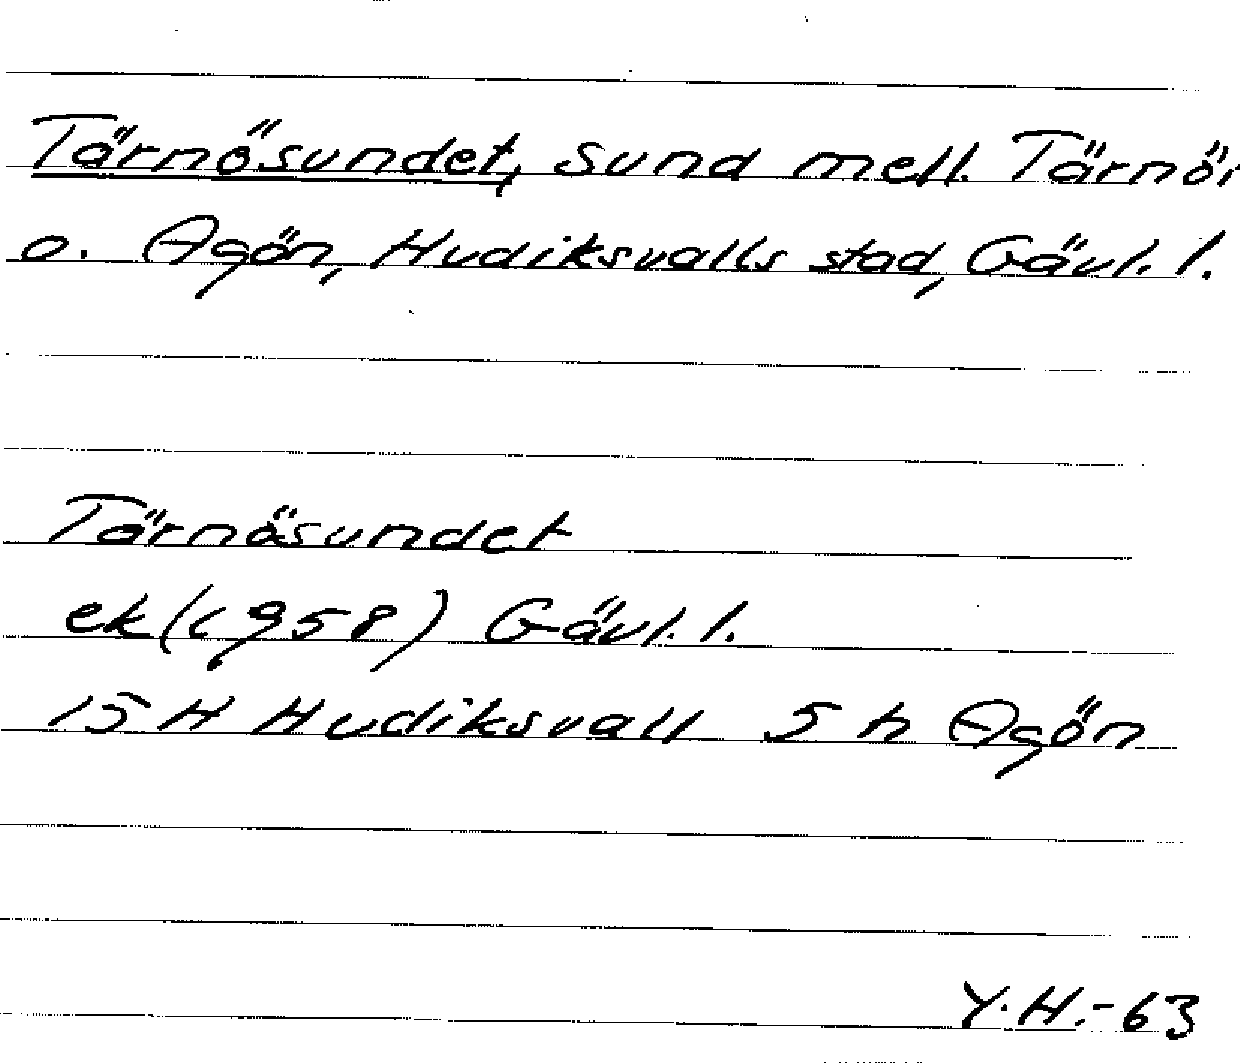 Tärnösundet, sund mell. Tärnön
o. Agön, Hudiksvalls stad, Gävl. l.
Tärnösundet
ek (1958) Gävl. l.
15 H Hudiksvall 5 h Agön
Y.H.-63